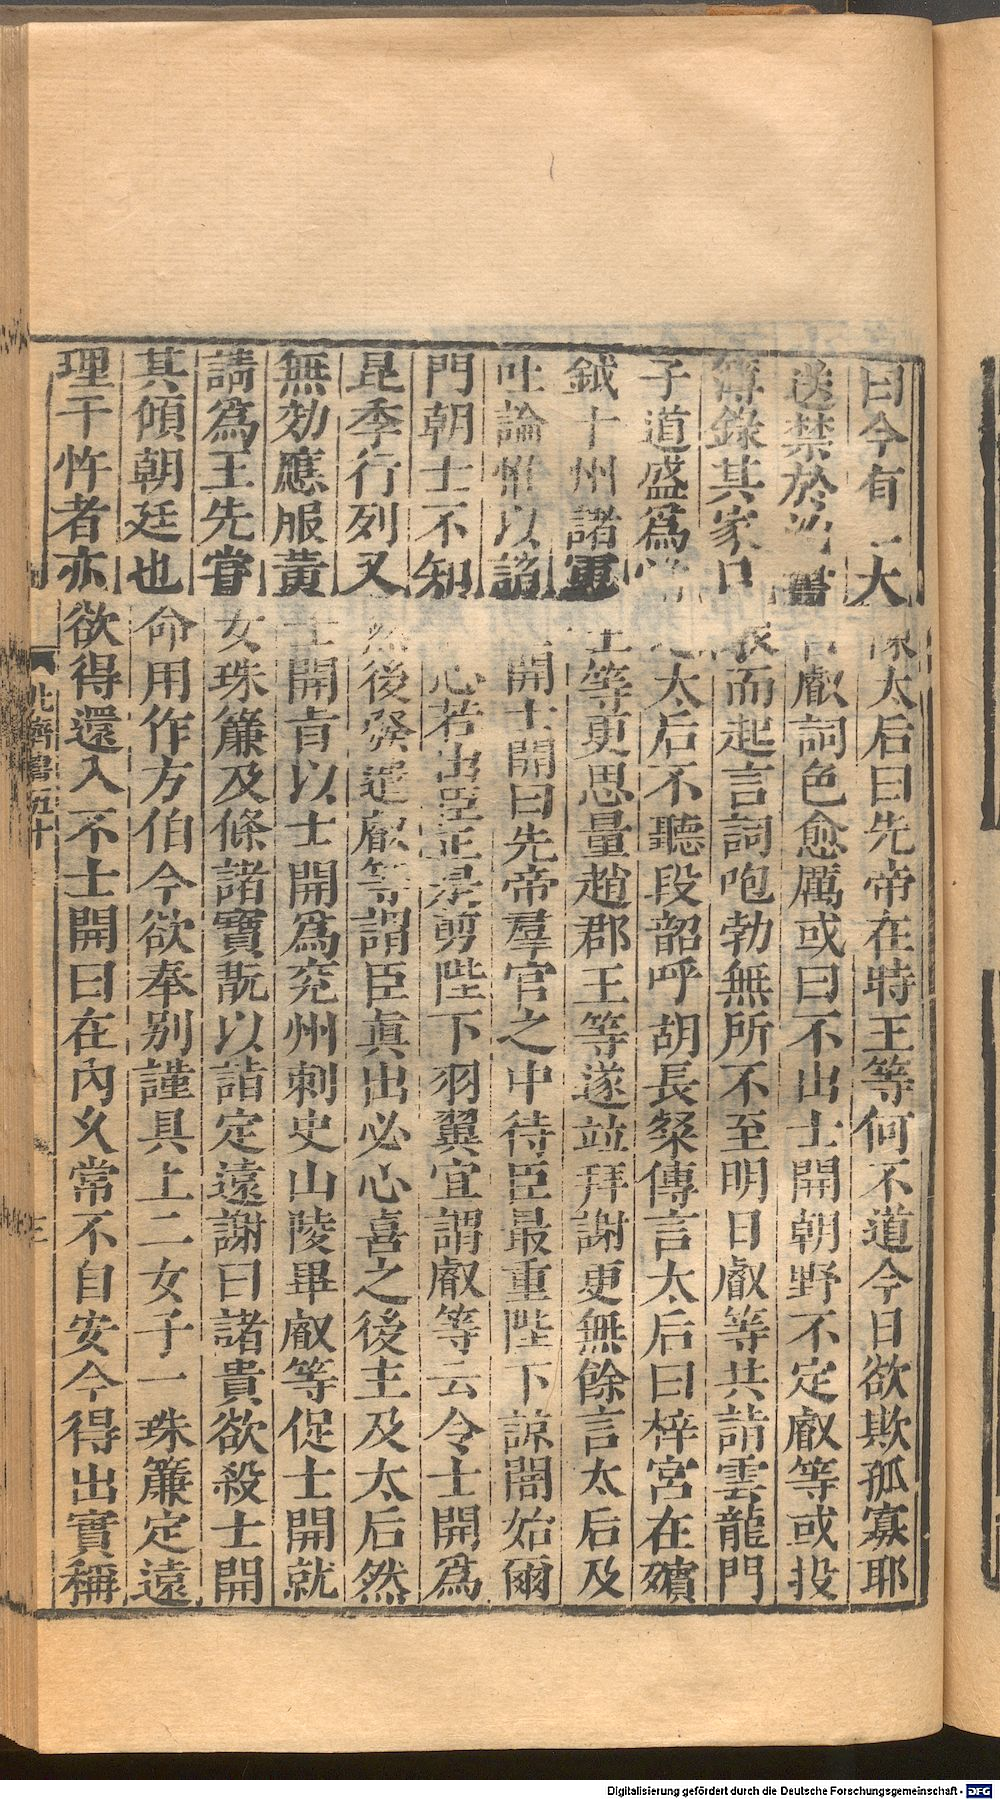 曰今有一大太后曰先帝在時王等何不道今日欲欺孤寡耶
送禁於書叡詞色愈厲或曰不出士開朝野不定叡等或投
簿錄其家口而起言詞咆勃無所不至明日叡等共請雲龍門
子道盛爲太后不聽段韶呼胡長粲傳言太后曰梓宮在殯
鉞十州諸軍王等更思量趙郡王等遂竝拜謝更無餘言太后及
吐論惟以諂開士開曰先帝羣官之中待臣最重陛下諒闇始爾
門朝士不知心若出臣正是剪陛下羽翼宜謂叡等云令士開爲
昆季行列又然後發遣叡等謂臣眞出必心喜之後主及太后然
無効應服黃士開肯以士開爲兖州刺史山陵畢叡等促士開就
請爲王先嘗女珠簾及條諸寶翫以詣定遠謝曰諸貴欲殺士開
其傾朝廷也命用作方伯今欲奉别謹具上二女子一珠簾定遠
理干忤者亦欲得還入不士開曰在內乆常不自安今得出實稱
北齊書五十
三
Digitalisierung gefördert durch die Deutsche Forschungsgemeinschaft - DFG